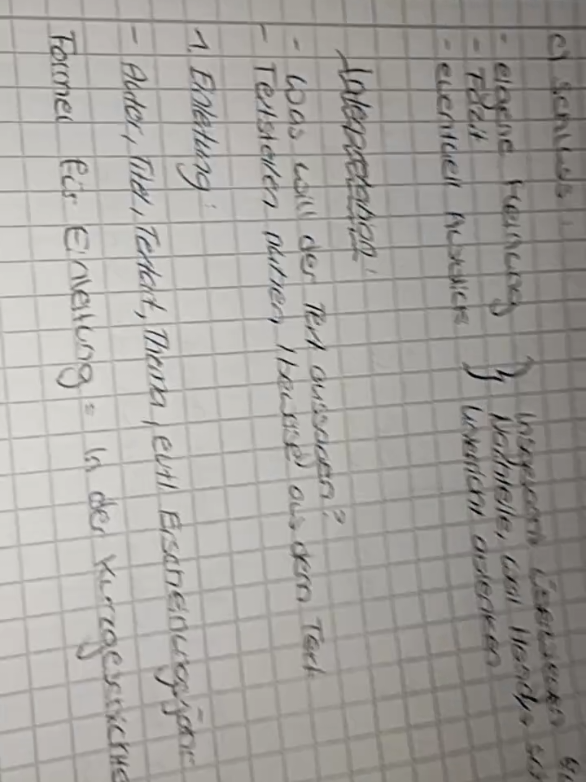 c) Schluss:
- eigene Meinung
- Fazit
- eventuell Ausblick
} insgesamt überwiegen
Nachteile, weil Handys
Unterricht ablenken
Interpretation:
- Was will der Text aussagen?
- Textstellen nutzen (Beweise) aus dem Text
1. Einleitung:
- Autor, Titel, Textart, Thema, evtl. Erscheinungsjahr
Formel für Einleitung = In der Kurzgeschichte